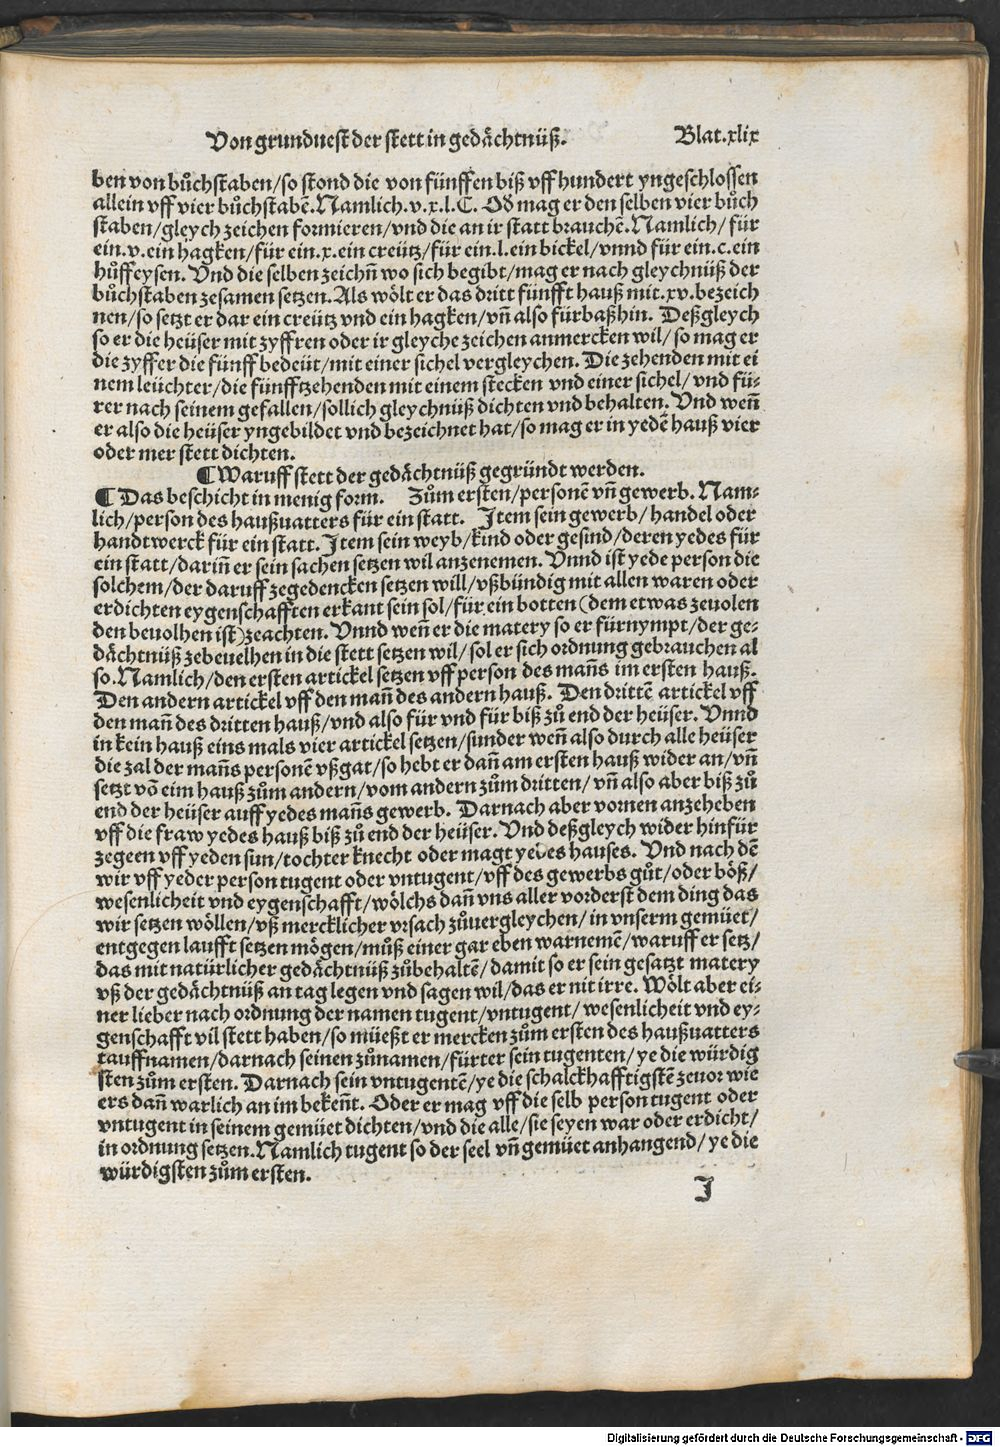 Von grunduest der stett in gedächtnüß. Blat.xlix
ben von bůchstaben/so stond die von fünffen biß vff hundert yngeschlossen
allein vff vier bůchstabē. Namlich.v.x.l.C. Od mag er den selben vier bůch
staben/gleych zeichen formieren/vnd die an ir statt brauchē. Namlich/für
ein.v.ein hagken/für ein.x.ein creütz/für ein.l.ein bickel/vnnd für ein.c.ein
hůffeysen. Vnd die selben zeichñ wo sich begibt/mag er nach gleychnüß der
bůchstaben zesamen setzen. Als wölt er das dritt fünfft hauß mit.xv.bezeich
nen/so setzt er dar ein creütz vnd ein hagken/vñ also fürbaßhin. Deßgleych
so er die heüser mit zyffren oder ir gleyche zeichen anmercken wil/so mag er
die zyffer die fünff bedeüt/mit einer sichel vergleychen. Die zehenden mit ei
nem leüchter/die fünfftzehenden mit einem stecken vnd einer sichel/vnd fü⸗
rer nach seinem gefallen/sollich gleychnüß dichten vnd behalten. Vnd weñ
er also die heüser yngebildet vnd bezeichnet hat/so mag er in yedē hauß vier
oder mer stett dichten.
¶ Waruff stett der gedächtnüß gegründt werden.
¶ Das beschicht in menig form. Zům ersten/personē vñ gewerb. Nam⸗
lich/person des haußuatters für ein statt. Item sein gewerb/handel oder
handtwerck für ein statt. Item sein weyb/kind oder gesind/deren yedes für
ein statt/dariñ er sein sachen setzen wil anzenemen. Vnnd ist yede person die
solchem/der daruff zegedencken setzen will/vßbündig mit allen waren oder
erdichten eygenschafften erkant sein sol/für ein botten (dem etwas zeuolen
den beuolhen ist) zeachten. Vnnd weñ er die matery so er fürnympt/der ge⸗
dächtnüß zebeuelhen in die stett setzen wil/sol er sich ordnung gebrauchen al
so. Namlich/den ersten artickel setzen vff person des mañs im ersten hauß.
Den andern artickel vff den mañ des andern hauß. Den drittē artickel vff
den mañ des dritten hauß/vnd also für vnd für biß zů end der heüser. Vnnd
in kein hauß eins mals vier artickel setzen/sunder weñ also durch alle heüser
die zal der mañs personē vßgat/so hebt er dañ am ersten hauß wider an/vñ
setzt vō eim hauß zům andern/vom andern zům dritten/vñ also aber biß zů
end der heüser auff yedes mañs gewerb. Darnach aber vornen anzeheben
vff die fraw yedes hauß biß zů end der heüser. Vnd deßgleych wider hinfür
zegeen vff yeden sun/tochter knecht oder magt yedes hauses. Vnd nach dē
wir vff yeder person tugent oder vntugent/vff des gewerbs gůt/oder böß/
wesenlicheit vnd eygenschafft/wölchs dañ vns aller vorderst dem ding das
wir setzen wöllen/vß mercklicher vrsach zůuergleychen/in vnserm gemüet/
entgegen laufft setzen mögen/můß einer gar eben warnemē/waruff er setz/
das mit natürlicher gedächtnüß zůbehaltē/damit so er sein gesatzt matery
vß der gedächtnüß an tag legen vnd sagen wil/das er nit irre. Wölt aber ei⸗
ner lieber nach ordnung der namen tugent/vntugent/wesenlicheit vnd ey⸗
genschafft vil stett haben/so müeßt er mercken zům ersten des haußuatters
tauffnamen/darnach seinen zůnamen/fürter sein tugenten/ye die würdig
sten zům ersten. Darnach sein vntugentē/ye die schalckhafftigstē zeuor wie
ers dañ warlich an im bekeñt. Oder er mag vff die selb person tugent oder
vntugent in seinem gemüet dichten/vnd die alle/sie seyen war oder erdicht/
in ordnung setzen. Namlich tugent so der seel vñ gemüet anhangend/ye die
würdigsten zům ersten.
I
Digitalisierung gefördert durch die Deutsche Forschungsgemeinschaft - DFG